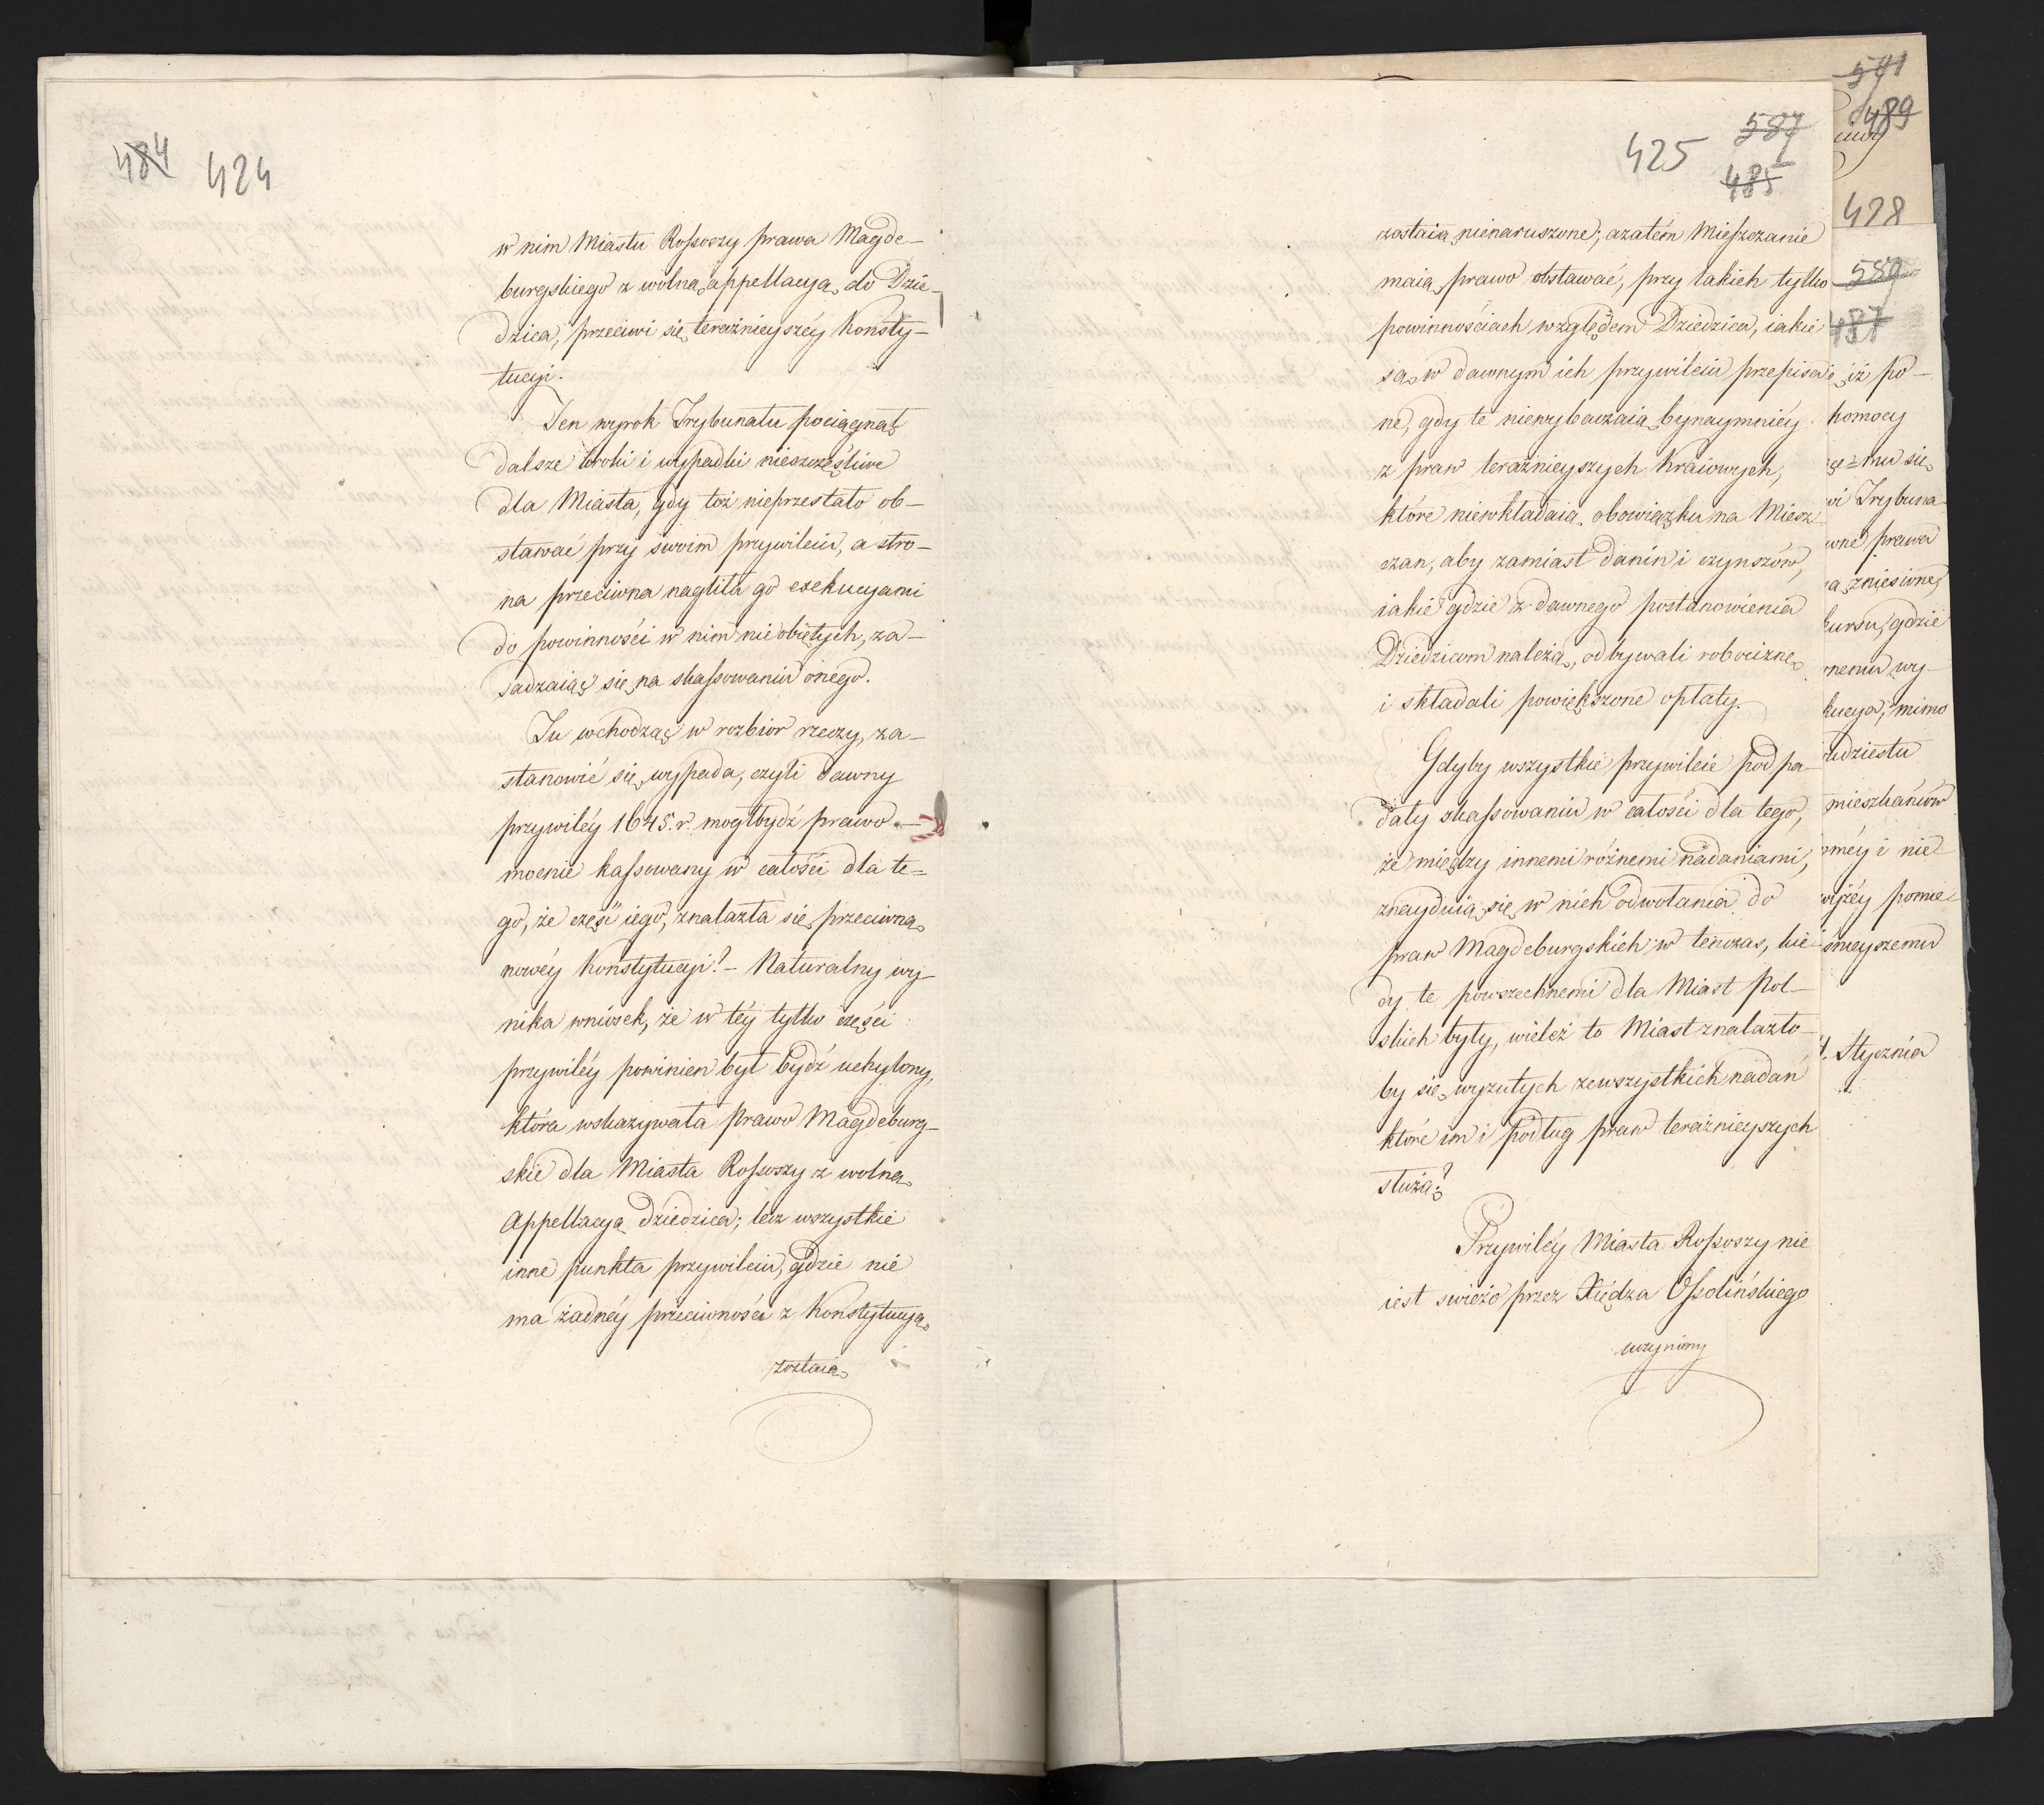 484 424
w nim Miastu Rossoszy prawa Magde-
burgskiego z wolną appellacyą do Dzie-
dzica, przeciwi się teraźnieyszéy Konsty-
tucyi.
Ten wyrok Trybunału pociągnął
dalsze kroki i wypadki nieszczęśliwe
dla Miasta, gdy toż nieprzestało ob-
stawać przy swoim przywileiu, a stro-
na przeciwna nagliła go exekucyami
do powinności w nim nie obiętych, za-
sadzaiąc się na skassowaniu onego.
Tu wchodząc w rozbior rzeczy, za-
stanowić się wypada, czyli dawny
przywiléy 1645. r. mógł bydź prawo-
mocnie kassowany w całości dla te-
go, że część iego, znalazła się przeciwną
nowéy Konstytucyi? - Naturalny wy-
nika wniosek, że w téy tylko części
przywiléy powinien był bydź uchylony,
która wskazywała prawo Magdeburg-
skie dla Miasta Rossoszy z wolną
Appellacyą dziedzica; lecz wszystkie
inne punkta przywileiu, gdzie nie
ma żadnéy przeciwności z Konstytucyą,
zostaią
425 587
485
zostaią nienaruszone; a zatém Mieszczanie
maią prawo obstawać, przy takich tylko
powinnościach względem Dziedzica, iakie
są w dawnym ich przywileiu przepisa-
ne, gdy te niewybaczaią bynaymniéy
z praw teraźnieyszych Kraiowych,
które niewkładaią obowiązku na Miesz-
czan, aby zamiast danin i czynszów,
iakie gdzie z dawnego postanowienia
Dziedzicom należą, odbywali robociznę
i składali powiększone opłaty.
Gdyby wszystkie przywileie podpa-
dały skassowaniu w całości dla tego,
że między innemi różnemi nadaniami,
znayduią się w nich odwołania do
praw Magdeburgskich w tenczas, kie-
dy te powszechnemi dla Miast Pol-
skich były, wieleż to Miast znalazło-
by się wyzutych ze wszystkich nadań
które im i podług praw teraźnieyszych
służą?
Przywiléy Miasta Rossoszy nie
iest swieżo przez Xiędza Ossolińskiego
uczyniony
591
489
428
589
487
iż po-
komocy
mu się
wi Trybuna-
wne prawa
zniesione,
kursu, gdzie
nemu wy-
kucya, mimo
udziestu
mieszkańców
méy i nie
wyżéy pomie-
śnieyszemu
Stycznia